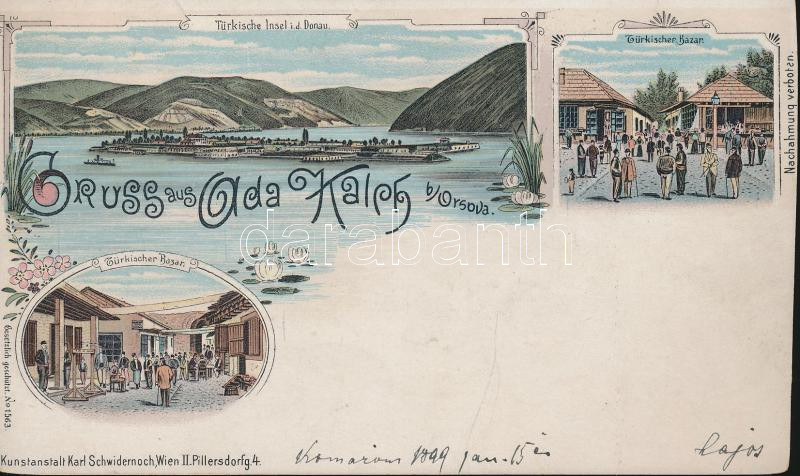 Türkische Insel i.d. Donau.
Türkischer Bazar.
Nachahmung verboten.
Gruss aus Ada Kaleh b/Orsova.
darabanth
Türkischer Bazar.
Gesetzlich geschützt. No 1563.
Kunstanstalt Karl Schwidernoch, Wien II. Pillersdorfg. 4.
Komárom 1899 jan. 15én
Lajos